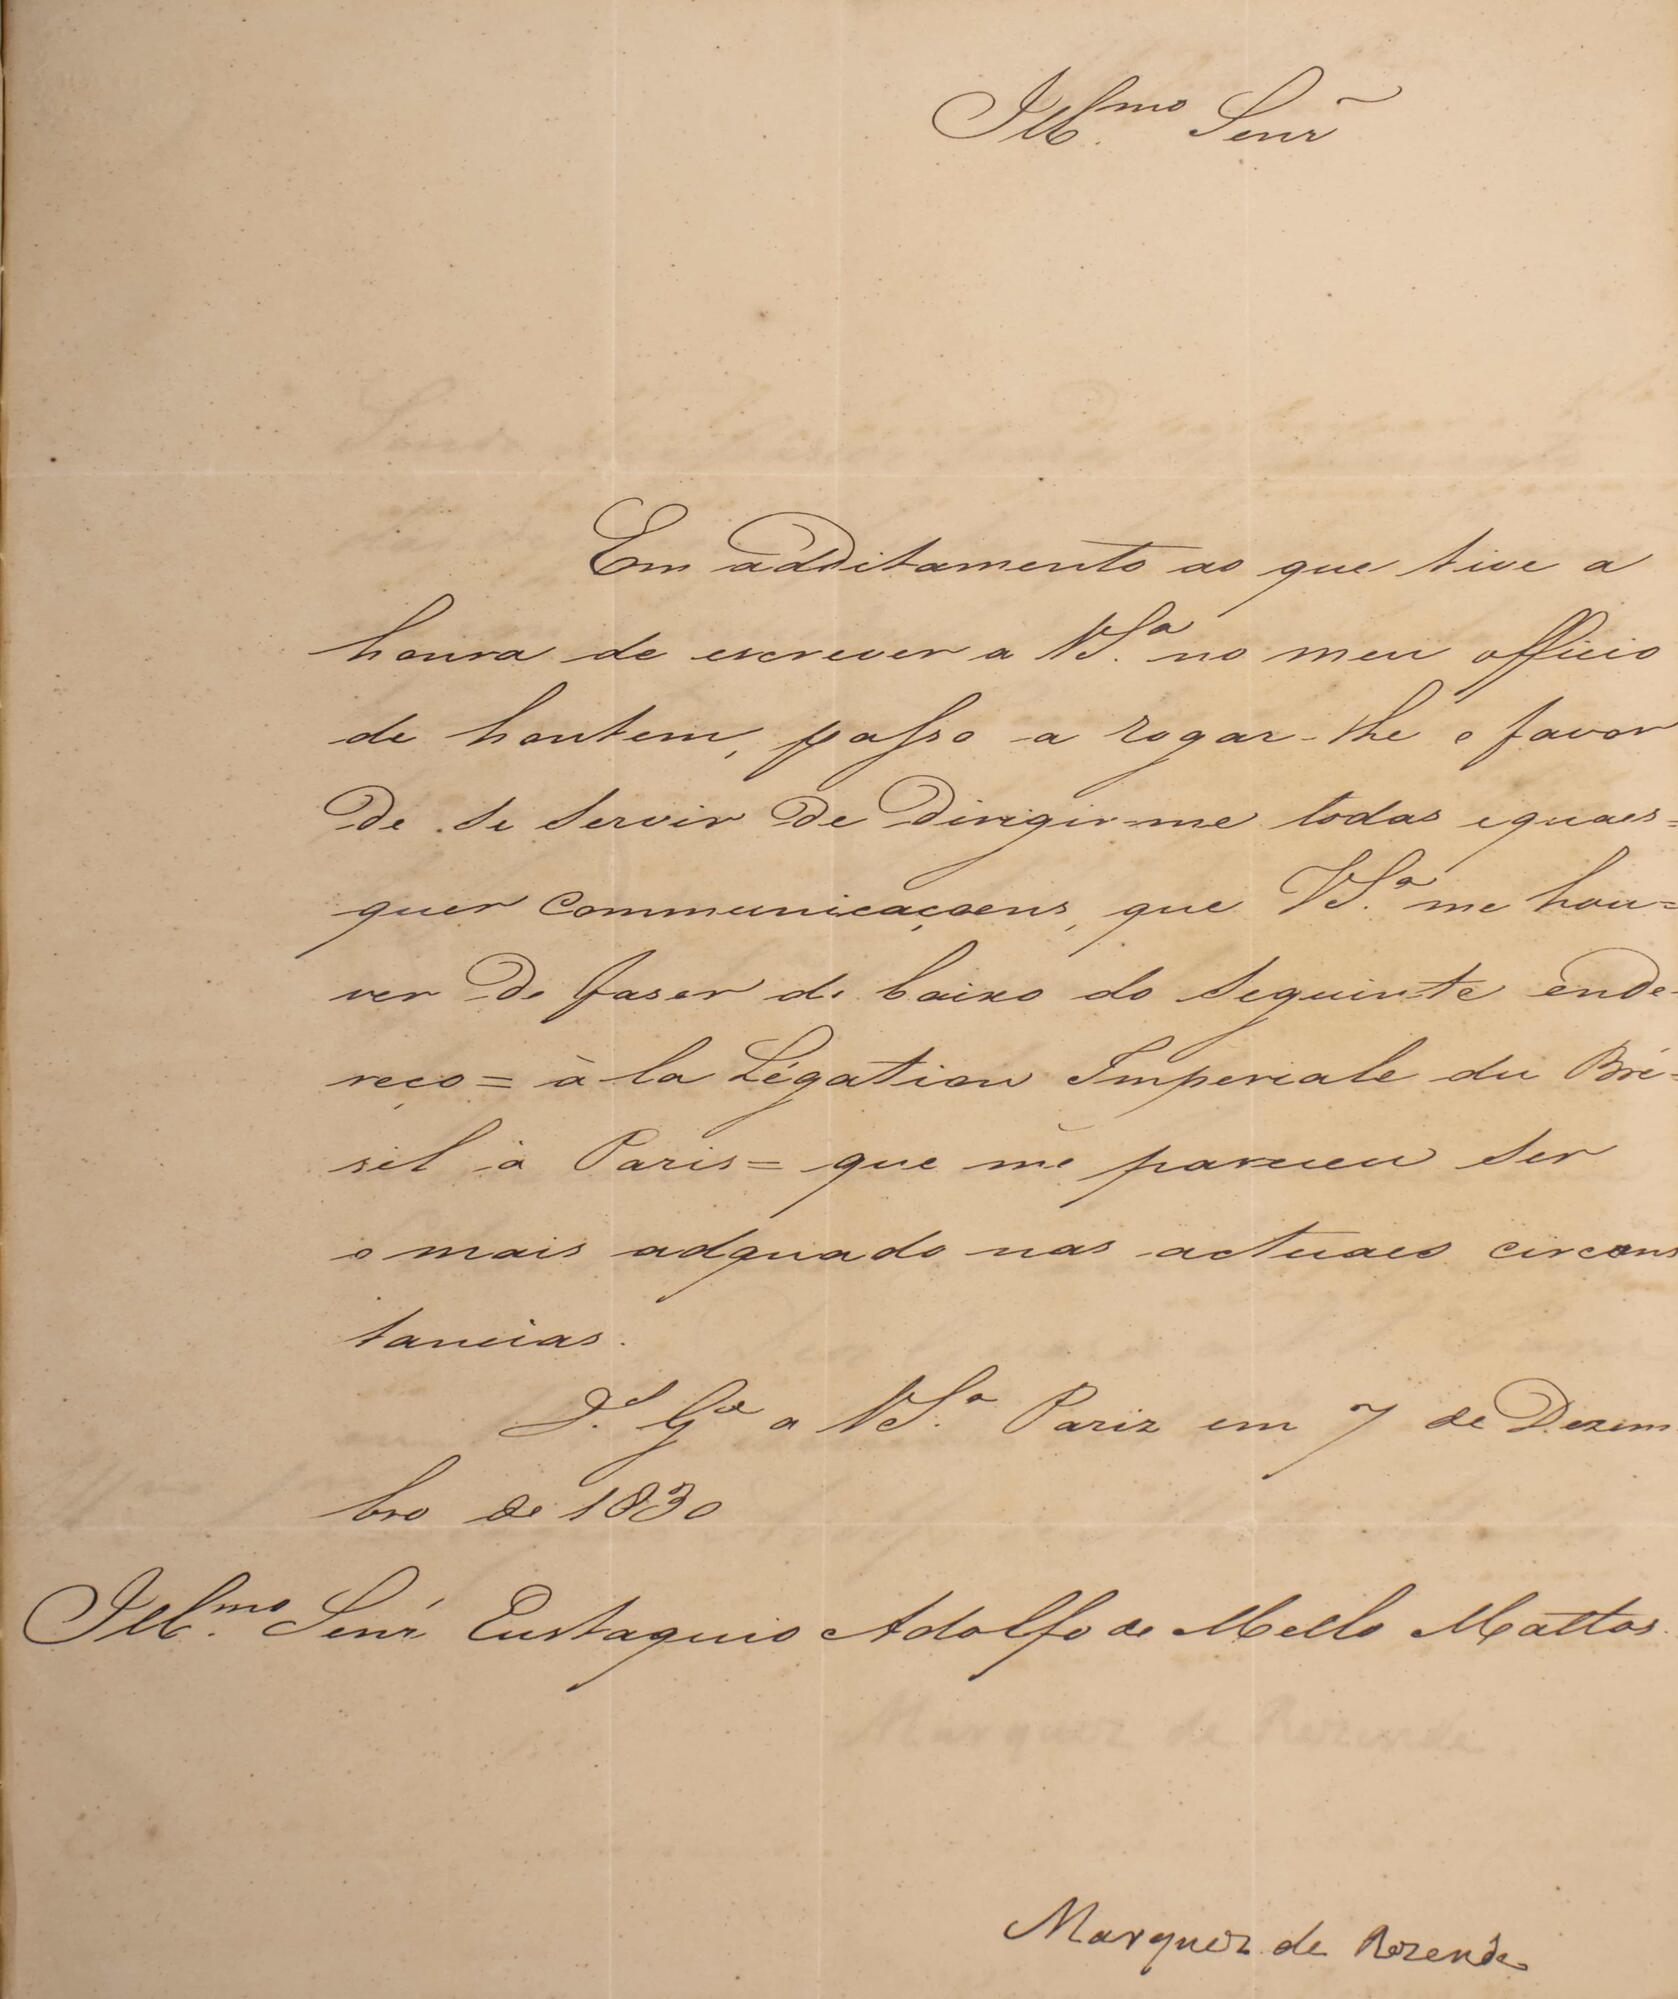 Ill.mo Senr
Em additamento ao que tive a
honra de escrever a V S.a no meu officio
de hontem, passo a rogar-lhe o favor
de se servir de dirigir-me todas e quaes=
quer communicaçoens, que V S.a me hou=
ver de faser de baixo do seguinte ende-
reço= à la Légation Imperiale du Bré=
sil à Paris= que me pareceu ser
o mais adquado nas actuaes circons
tancias.
D.s G.e a V S.a Pariz em 7 de Dezem
bro de 1830
Ill.mo Senr Eustaquio Adolfo de Mello Mattos.
Marquez de Rezende